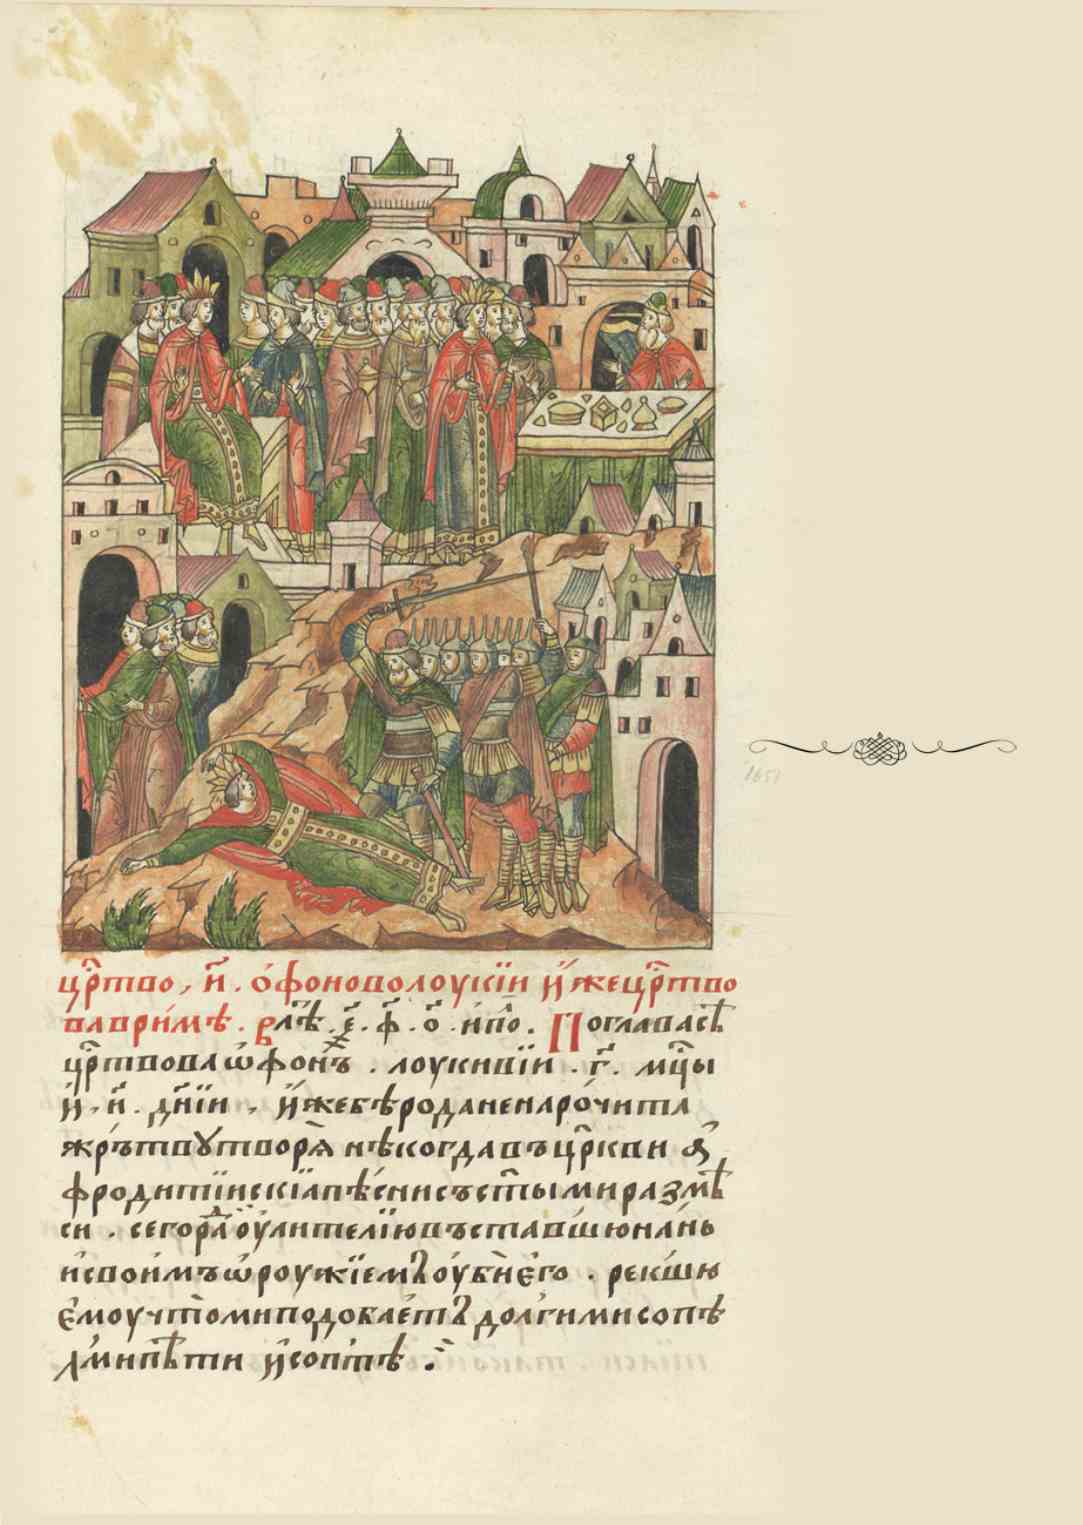 цр҃тво, и҃. ѻ҆фоноволоукїи и҆жецр҃тво
ваври́мѣ. влѣ. ҂е҃. ф҃. о҃. ипо. Поглавасѣ
цр҃твова ѡфонъ. лоукивїи. г҃. мц҃ы
и҆, и҃. дн҃їи, и҆жебѣроданенаро́чита
жрътвꙋтворѧ̀ нѣкогдавъцр҃кви а҆
фродитїискїапѣснисъсты҃миразмѣ
си. сего
и҆своимъѡроужїемъ оу҆бн е҆го. рекшю
е҆моучтомиподобае҆тъ долгимисопѣ
лмипѣти и҆соптѣ.
1651